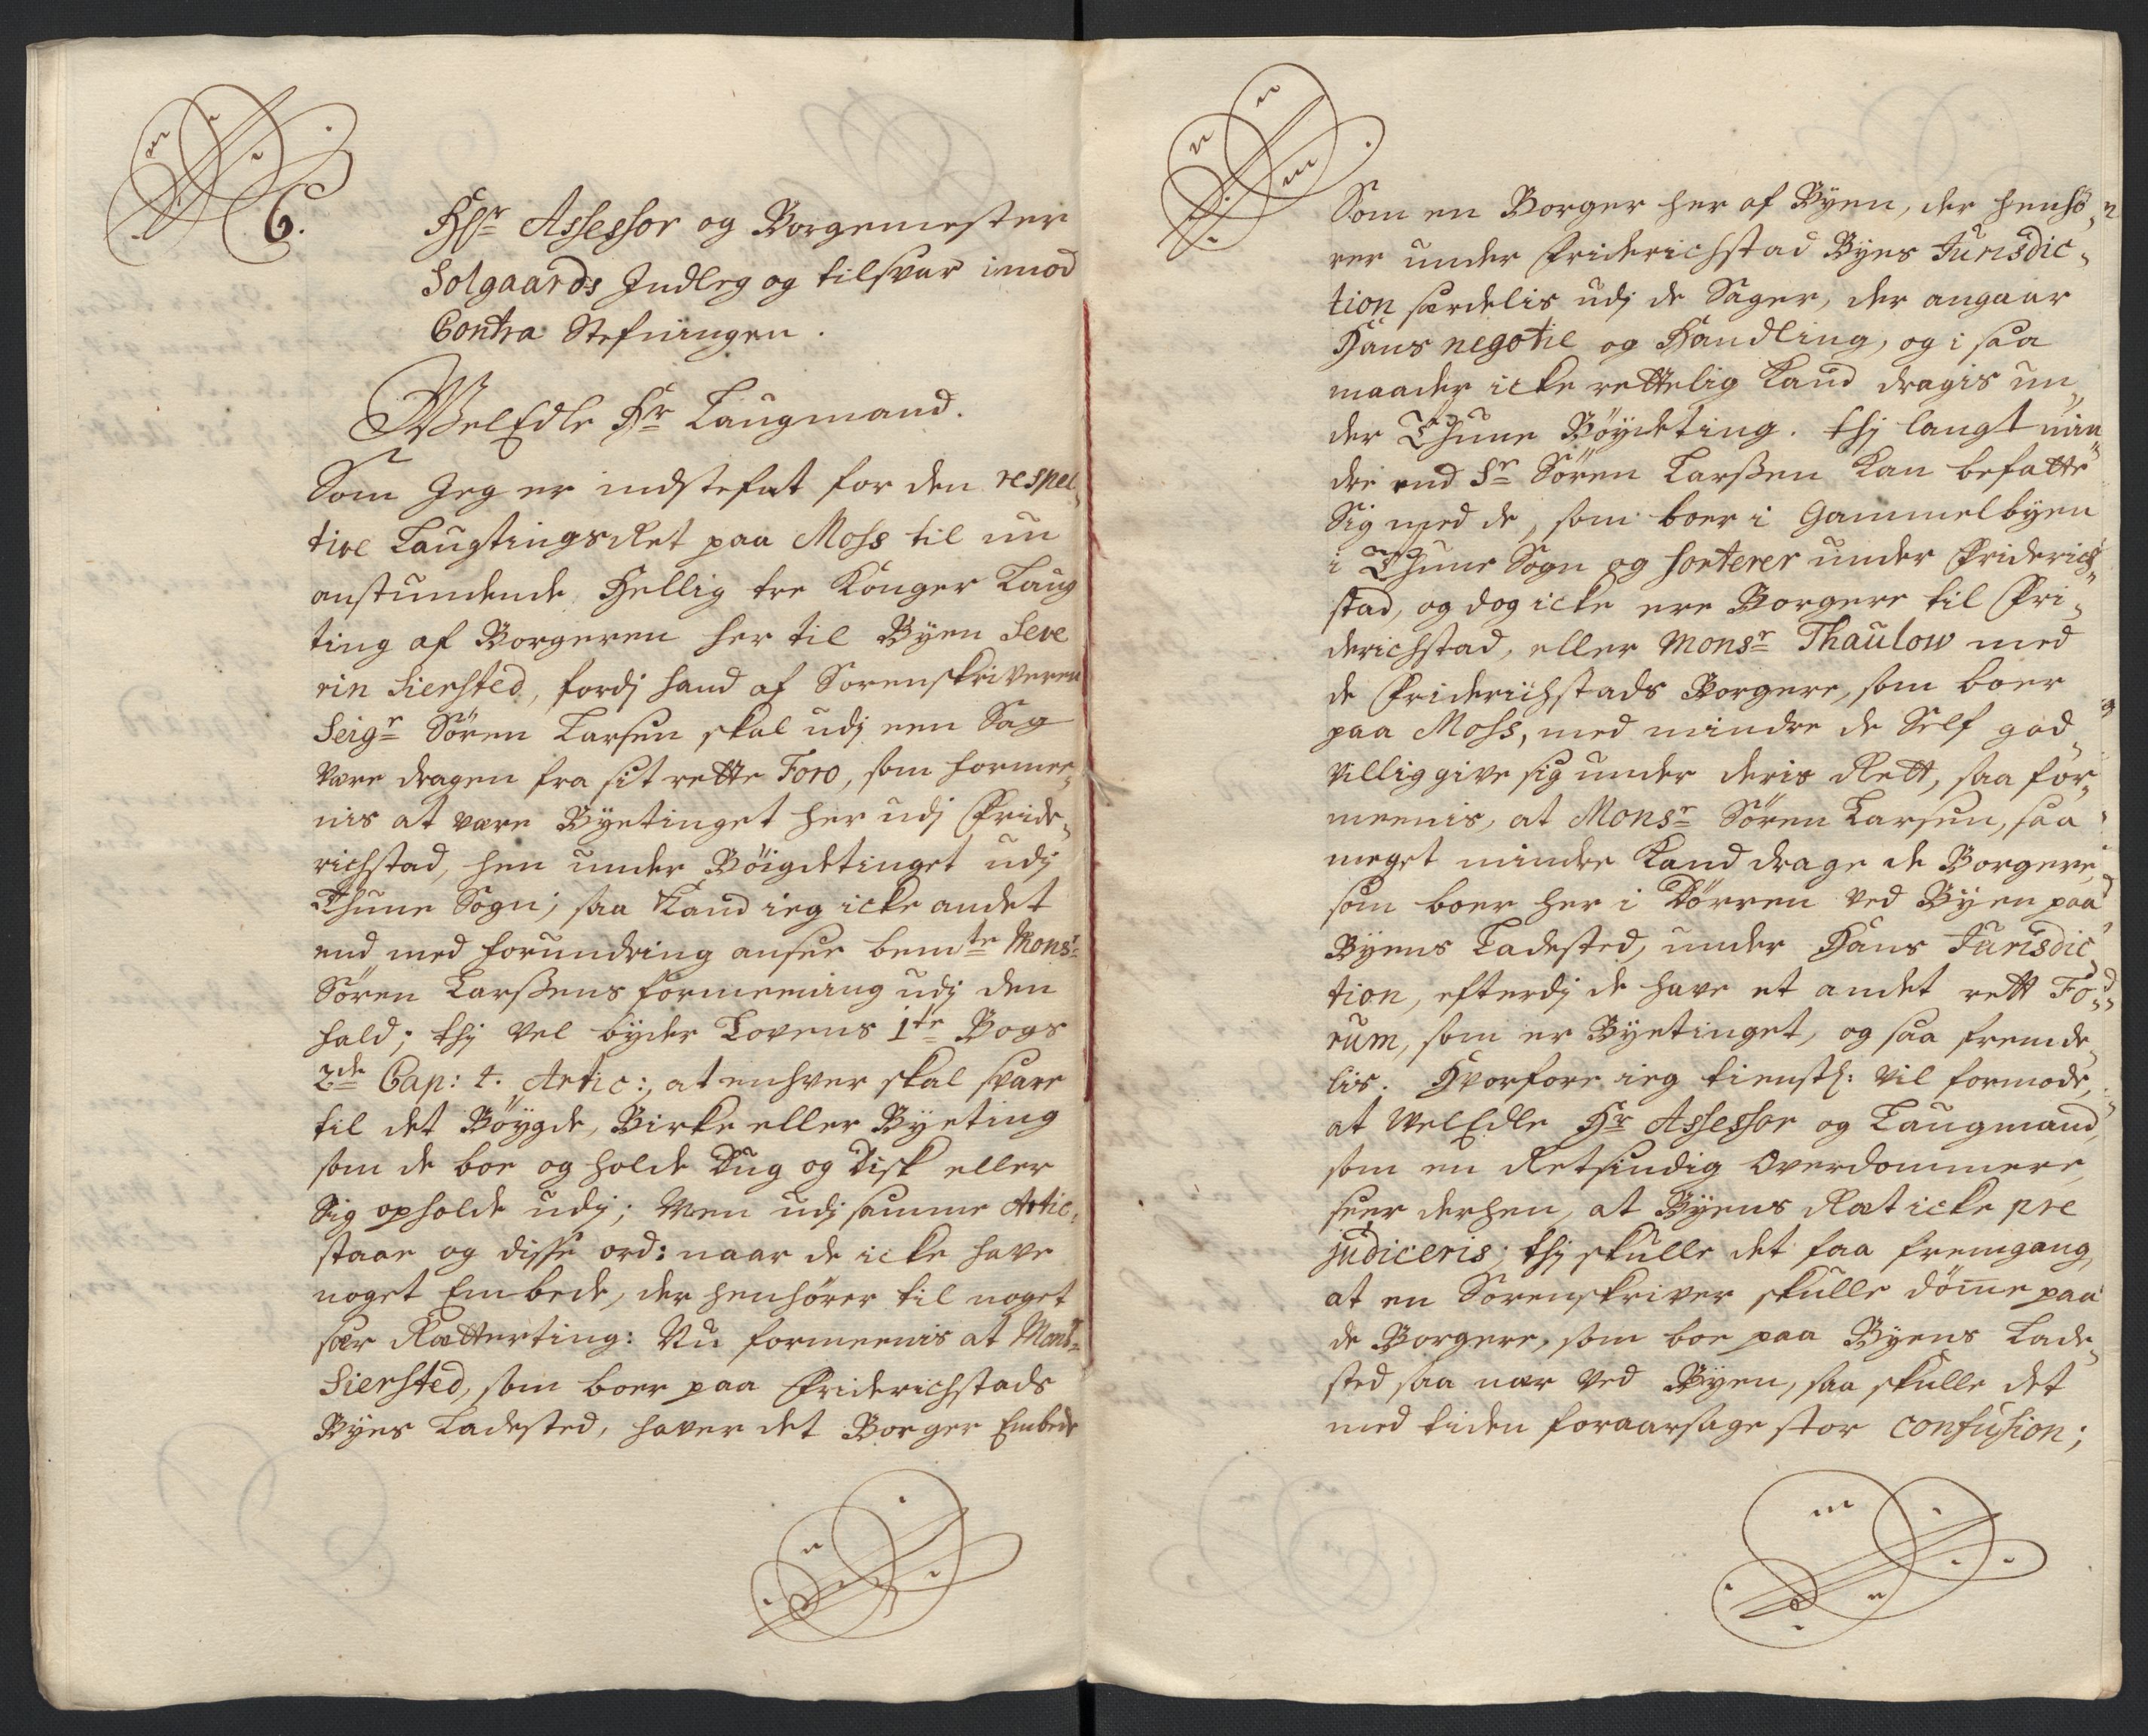 6.
Hr Assessor og Borgemester
Solgaards Indleg og tilsvar imod
Contra Stefningen.
WelEdle Hr Laugmand.
Som Jeg er indstefnt for den respec„
tive LaugtingsRet paa Moss til nu
anstundende Hellig tre Konger Laug
ting af Borgeren her til Byen Seve
rin Siersted, fordj hand af Sorenskriveren
Seigr Sören Larsen skal udj een Sag
være dragen fra sit rette Foro, som formee„
nis at være Byetinget her udj Fride„
richstad, hen under Böigdetinget udj
Thune Sogn; saa Kand ieg icke andet
end med forundring ansee bemte Monsr
Sören Larßens formeening udj den
fald; thj vel byder Lovens 1te Bogs
2de Cap: 4. Artic:, at enhver skal svare
til det Böygde, Birke eller Byeting
som de boe og holde Dug og Disk eller
Sig opholde udj; Men udj samme Artic:
staar og disse ord: naar de icke have
noget Embede, der henhörer til noget
sær Rætterting: Nu formeenis at Monsr
Siersted, som boer paa Friderichstads
Byes Ladested, haver det Borger Embede
Som en Borger her af Byen, der henhö„
rer under Friderichstad Byes Jurisdic„
tion særdelis udj de Sager, der angaar
Hans negotie og Handling, og i saa
maader icke rettelig Kand dragis un„
der Thune Böydeting. thj langt min„
dre end Sr Sören Larßen Kan befatte
Sig med de, som boer i Gammelbyen
i Thune Sogn og sorterer under Friderich„
stad, og dog icke ere Borgere til Fri„
derichstad, eller Monsr Thaulow med
de Friderichstads Borgere, som boer
paa Moss, med mindre de Self god„
villig give sig under deris Rett, saa for„
meenis, at Monsr Sören Larsen, saa
meget mindre Kand drage de Borgere,
som boer her i Dörren ved Byen paa
Byens Ladested, under Hans Jurisdic„
tion, efterdj de have et andet rett Fo„
rum, som er Byetinget, og saa fremde„
lis. Hvorfore ieg tienstl: vil formode,
at WelEdle Hr Assessor og Laugmand,
som en Retsindig Overdommere,
seer derhen, at Byens Ræt icke præ
judiceris; thj skulle det faa fremgang,
at en Sorenskriver skulle döme paa
de Borgere, som boe paa Byens Lade„
sted saa nær ved Byen, saa skulle det
med tiden foraarsage stor confusion;